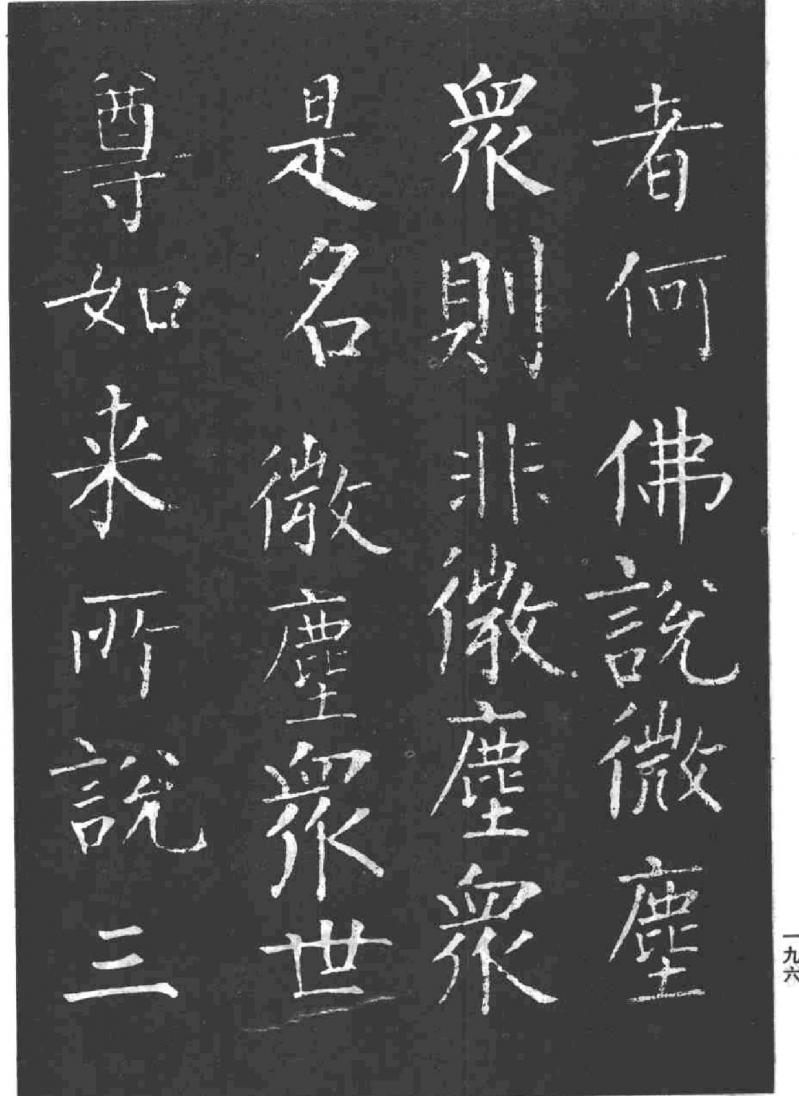 者何佛說微塵
眾則非微塵眾
是名微塵眾世
尊如来所說三
一九六